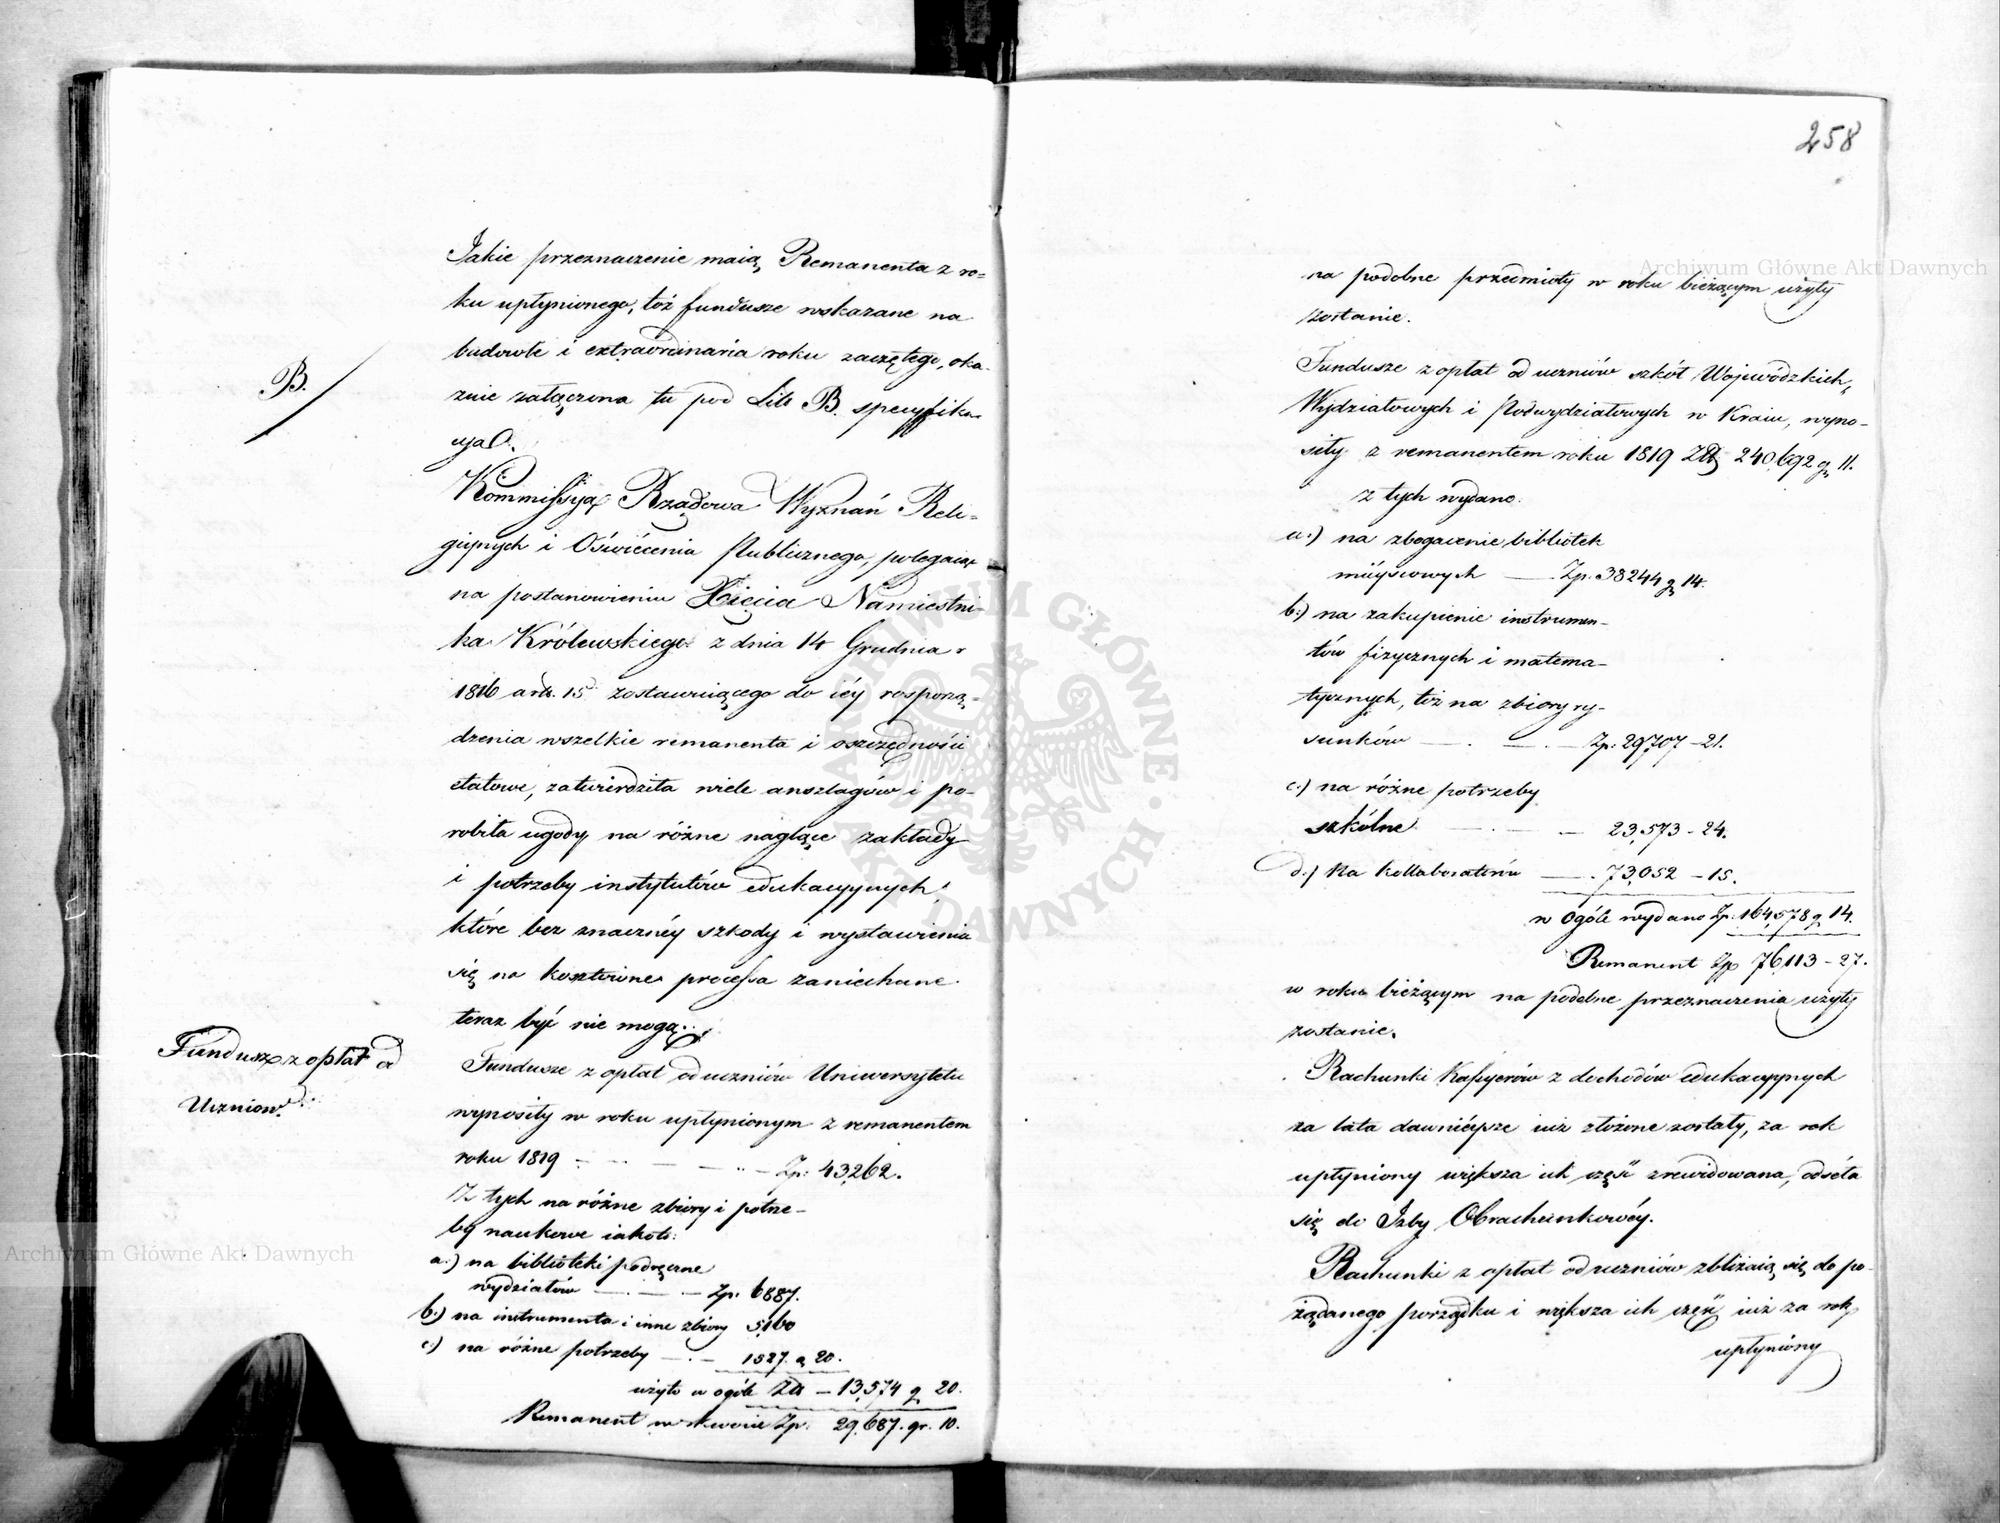 Jakie przeznaczenie maią Remanenta z ro=
ku upłynionego, toż fundusze wskazane na
budowle i extraordinaria roku zaczętego, oka-
znie załączona tu pod Lit. B. specyfika=
cyja.
B.
Kommissyja Rządowa Wyznań Reli-
giynych i Oświécenia Publicznego, polegaiąc
na postanowieniu Xięcia Namiestni-
ka Królewskiego z dnia 14 Grudnia r
1816 art. 15 zostawuiącego do iéy rosporzą-
dzenia wszelkie remanenta i oszczędności
etatowe, zatwierdziła wiele anszlagów i po-
robiła ugody na różne naglące zakłady
i potrzeby instytutów edukacyynych,
które bez znacznéy szkody i wystawienia
się na kosztowne processa zaniechane
teraz być nie mogą.
Fundusze z opłat od
Uczniów.
Fundusze z opłat od uczniów Uniwersytetu
wynosiły w roku upłynionym z remanentem
roku 1819 — Zp: 43,262.
Z tych na różne zbiory i potrze-
by naukowe iakoto:
a.) na biblioteki podręczne
wydziałów — Zp. 6887.
b.) na instrumenta i inne zbiory 5,160
c) na różne potrzeby — 1527. g 20.
użyto w ogóle Zł — 13,574 g 20.
Remanent w skwocie Zp. 29,687. gr. 10.
258
na podobne przedmioty w roku bieżącym użyty
zostanie.
Fundusze z opłat od uczniów szkół Wojewódzkich,
Wydziałowych i Podwydziałowych w Kraiu, wyno-
siły z remanentem roku 1819 Zł 240,692 g 11.
z tych wydano.
a.) na zbogacenie bibliotek
mieyscowych — Zp. 38244 g 14.
b.) na zakupienie instrumen-
tów fizycznych i matema-
tycznych, toż na zbiory ry-
sunków — Zp. 29,707 — 21.
c.) na różne potrzeby
szkólne — 23,573 — 24.
d.) Na kollaboratorów — 73,052 — 15.
w Ogóle wydano Zp. 164,578 g 14.
Remanent Zp 76,113 — 27.
w roku bieżącym na podobne przeznaczenia użyty
zostanie.
Rachunki Kassyerów z dochodów edukacyynych
za lata dawniéysze iuż złożone zostały, za rok
upłyniony większa ich część zrewidowana, odséła
się do Izby Obrachunkowéy.
Rachunki z opłat od uczniów zbliżaią się do po-
żądanego porządku i większa ich część iuż za rok
upłyniony
Archiwum Główne Akt Dawnych
Archiwum Główne Akt Dawnych
ARCHIWUM GŁÓWNE · AKT DAWNYCH ·